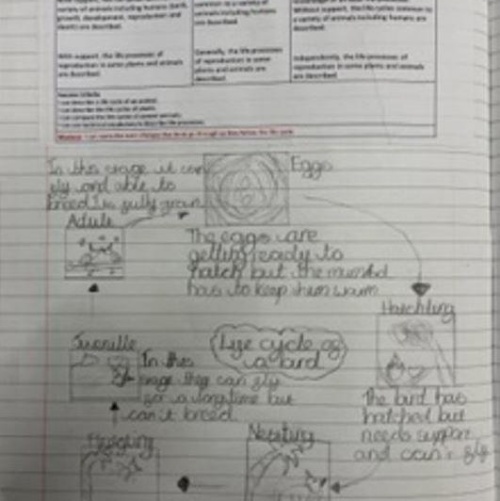 variety of animals including humans (birth,
growth, development, reproduction and
death) are described.
common to a variety of
animals including humans
are described.
Without support, the life cycles common to
a variety of animals including humans are
described.
With support, the life processes of
reproduction in some plants and animals
are described.
Generally, the life processes
of reproduction in some
plants and animals are
described.
Independently, the life processes of
reproduction in some plants and animals
are described.
In this stage it can
fly and able to
breed is fully grown
Adult
Eggs
The eggs are
getting ready to
hatch but the
has to keep them warm
Hatchling
The bird has
hatched but
needs support
and can't fly
Life cycle of
a bird
Juvenile
In this
stage they can fly
for a long time but
can't breed
Fledgling
Nestling